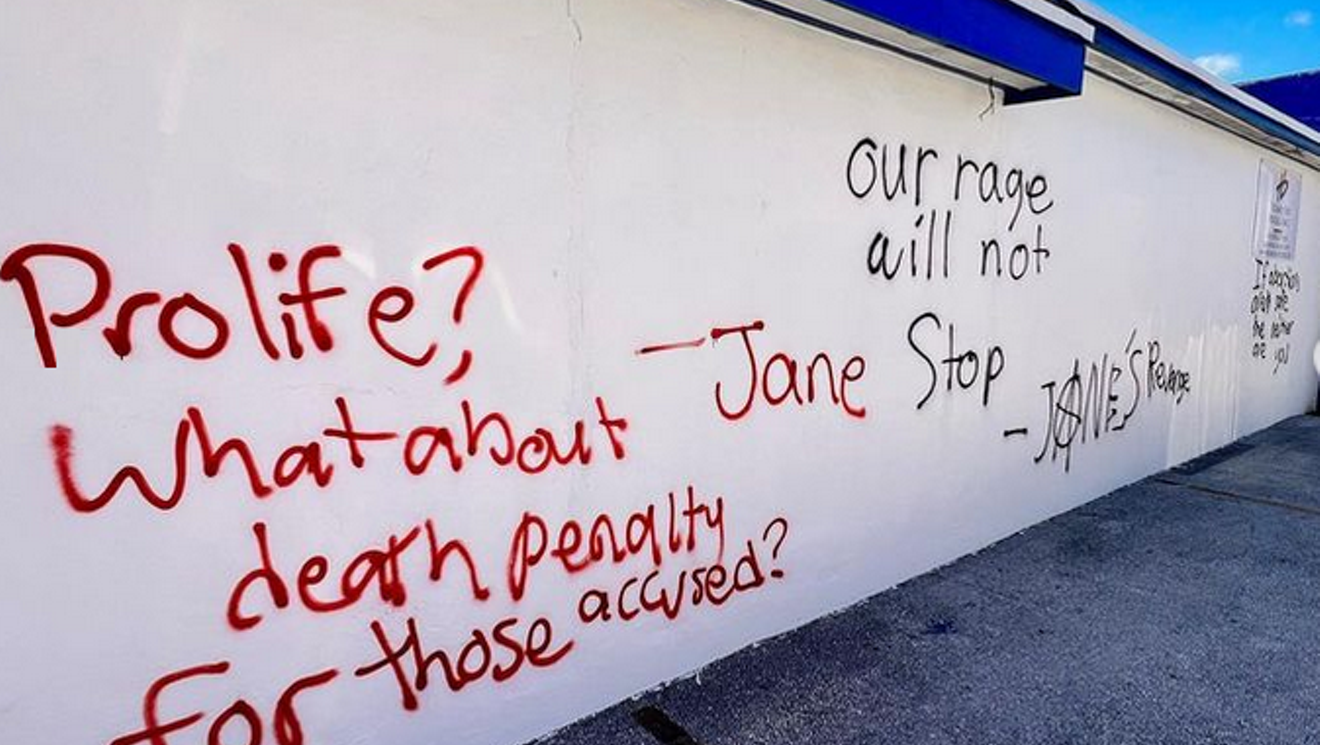 Prolife?,
What about
death penalty
For those accused?
- Jane
our rage
will not
Stop
- JANE'S Revenge
If abortion
are you